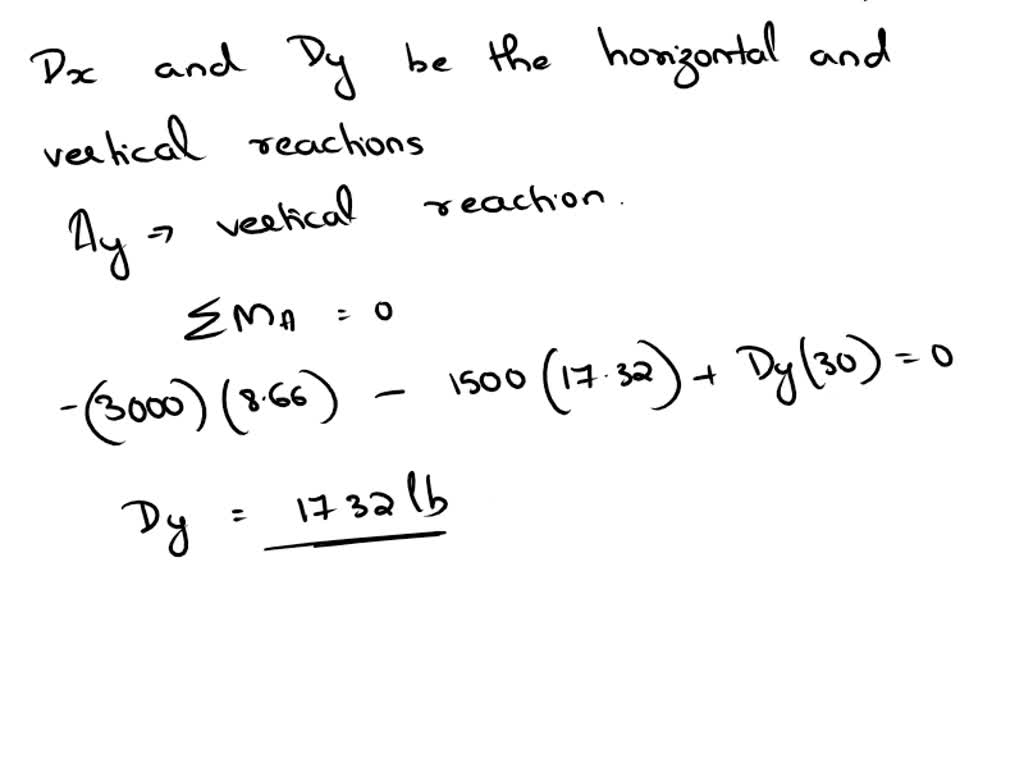 Dx and Dy be the horizontal and
vertical reactions
Ay → vertical reaction.
ΣMA = 0
-(3000)(8.66) - 1500(17.32) + Dy(30) = 0
Dy = 1732 lb